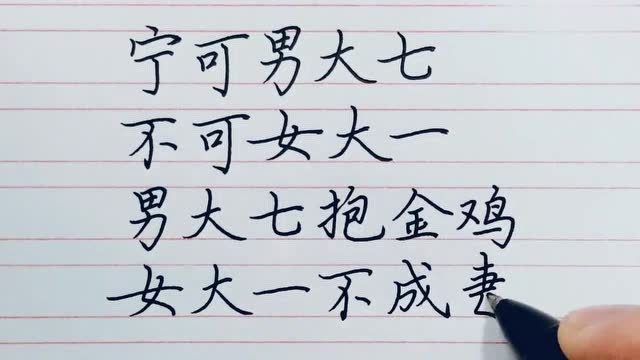 宁可男大七
不可女大一
男大七抱金鸡
女大一不成妻